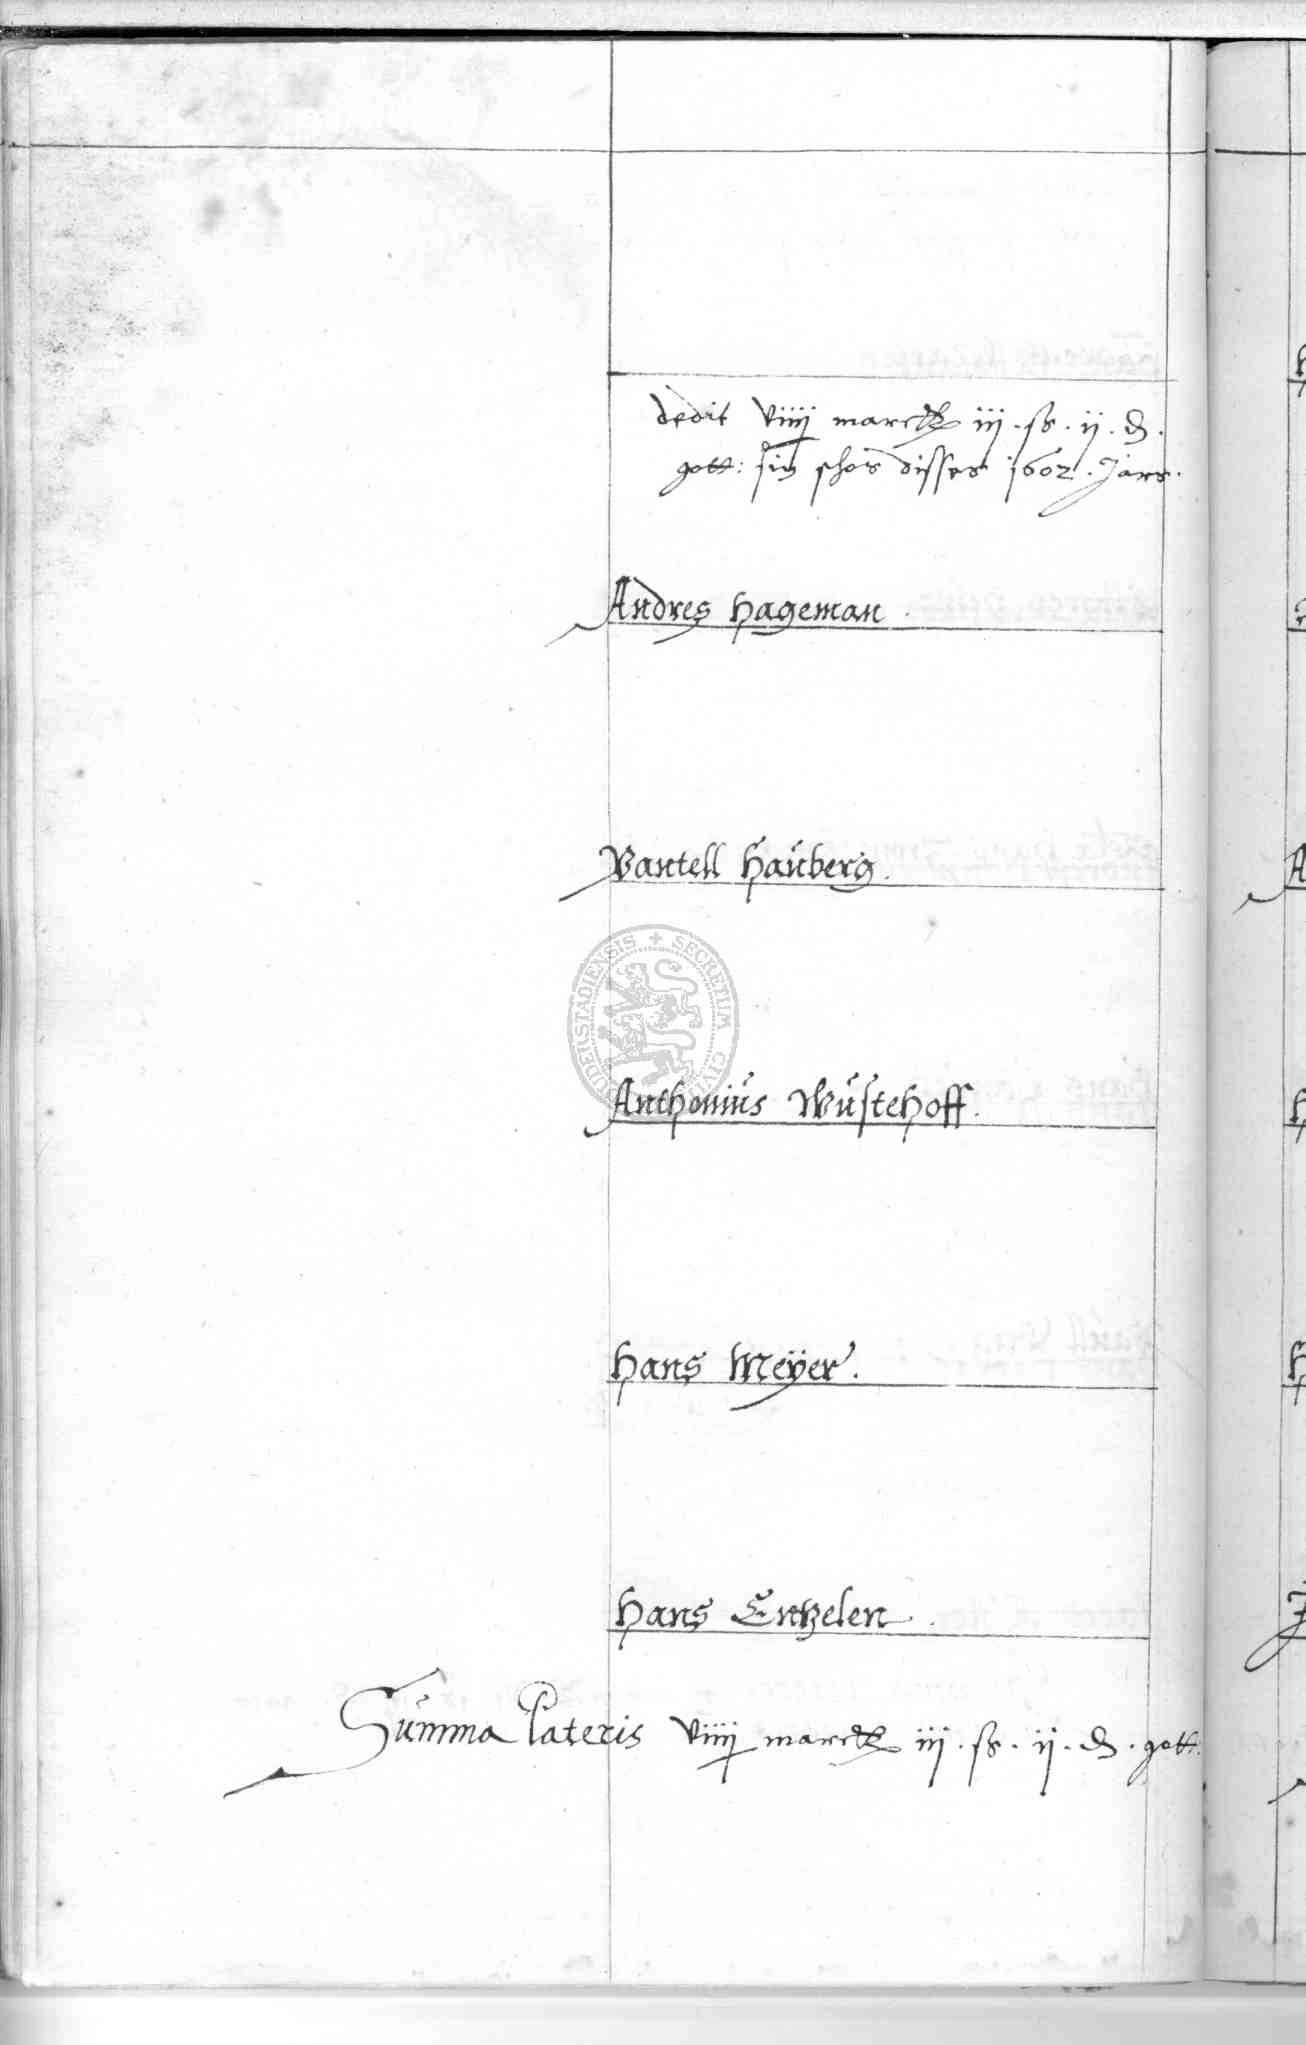 dedit viiij marck iij . ß . ij . d .
gott: sin schos disses 1602 . Jars .
Andres Hageman .
Bantell Hauberg .
SECRETUM CIVIUM DUDERSTADIENSIS +
Anthonius Wüstehoff .
Hans Meÿer .
Hans Entzelen .
Summa Lateris viiij marck iij . ß . ij . d . gott: